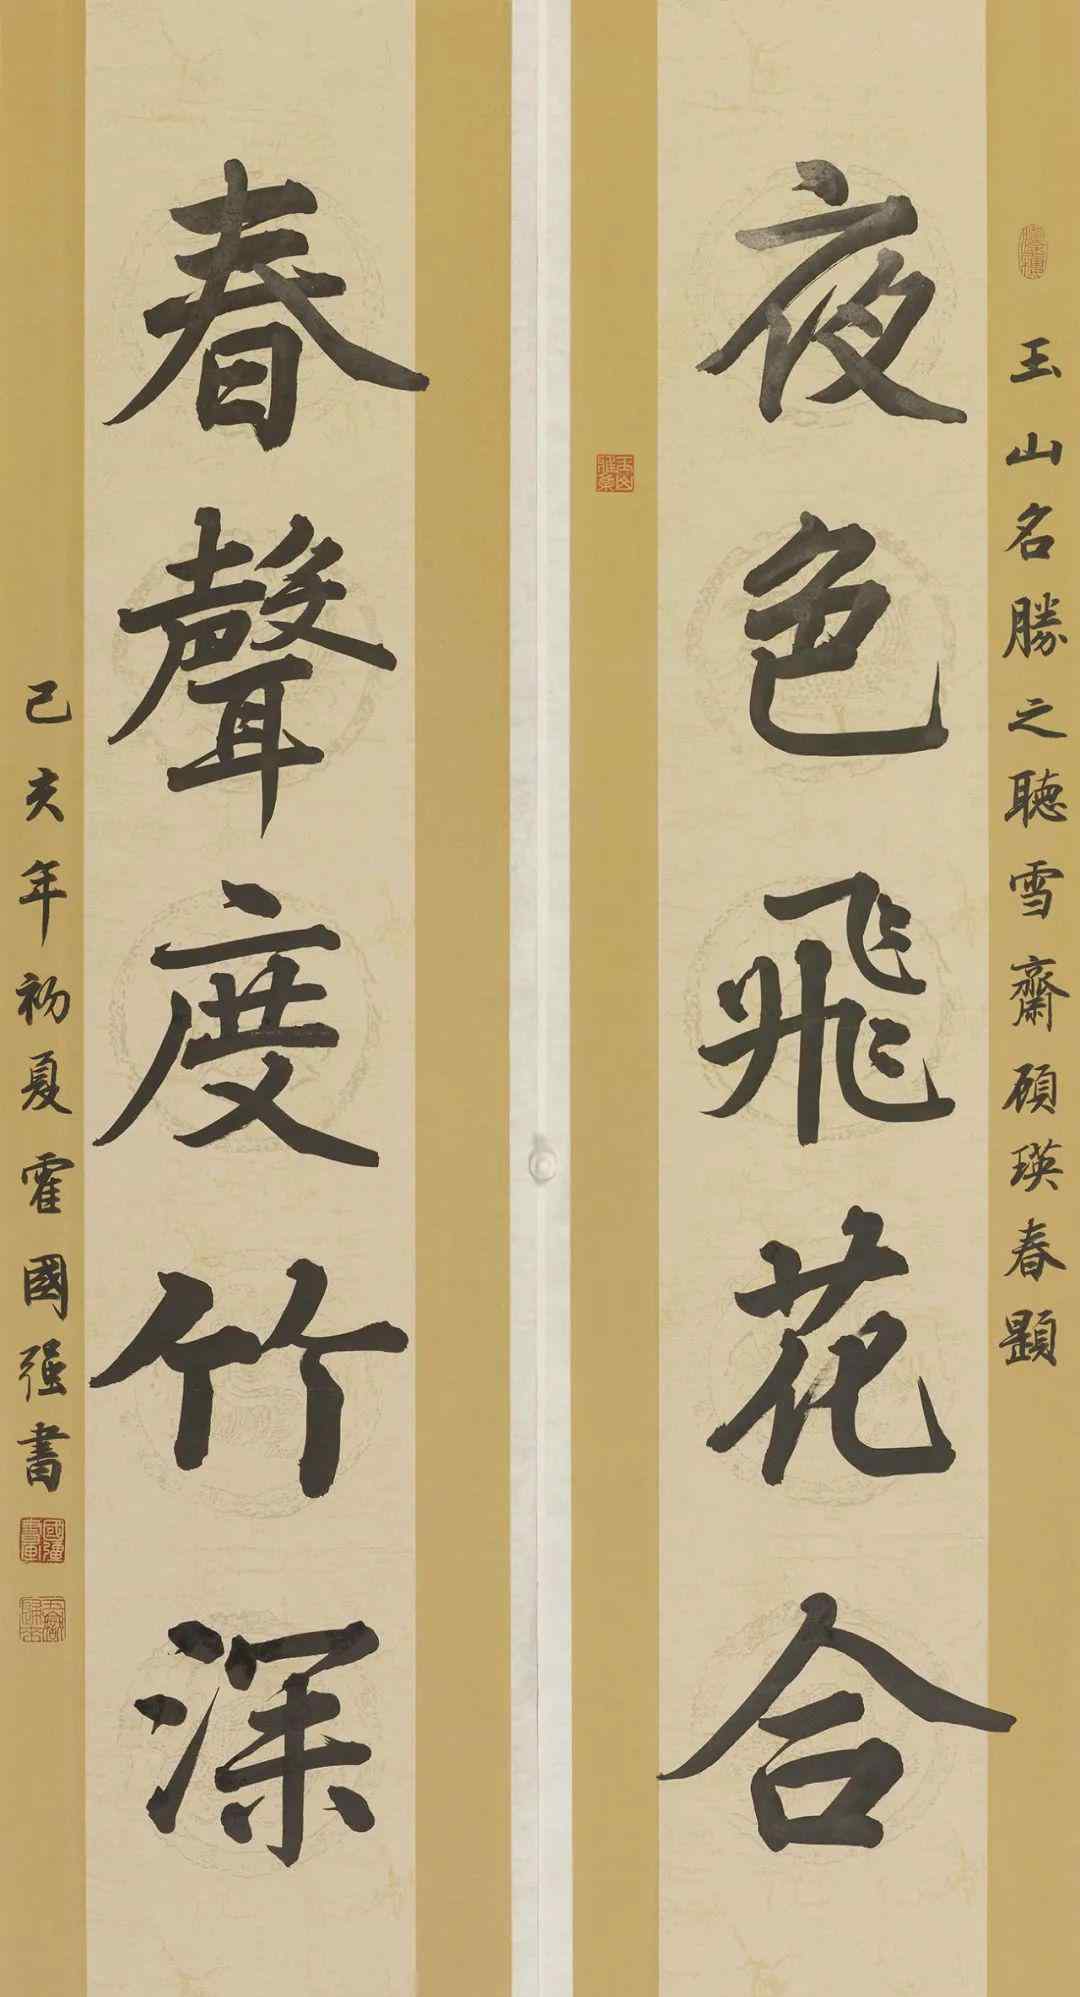 玉山名勝之聽雪齋顾瑛春題
夜色飛花合
春聲度竹深
己亥年初夏霍國强書